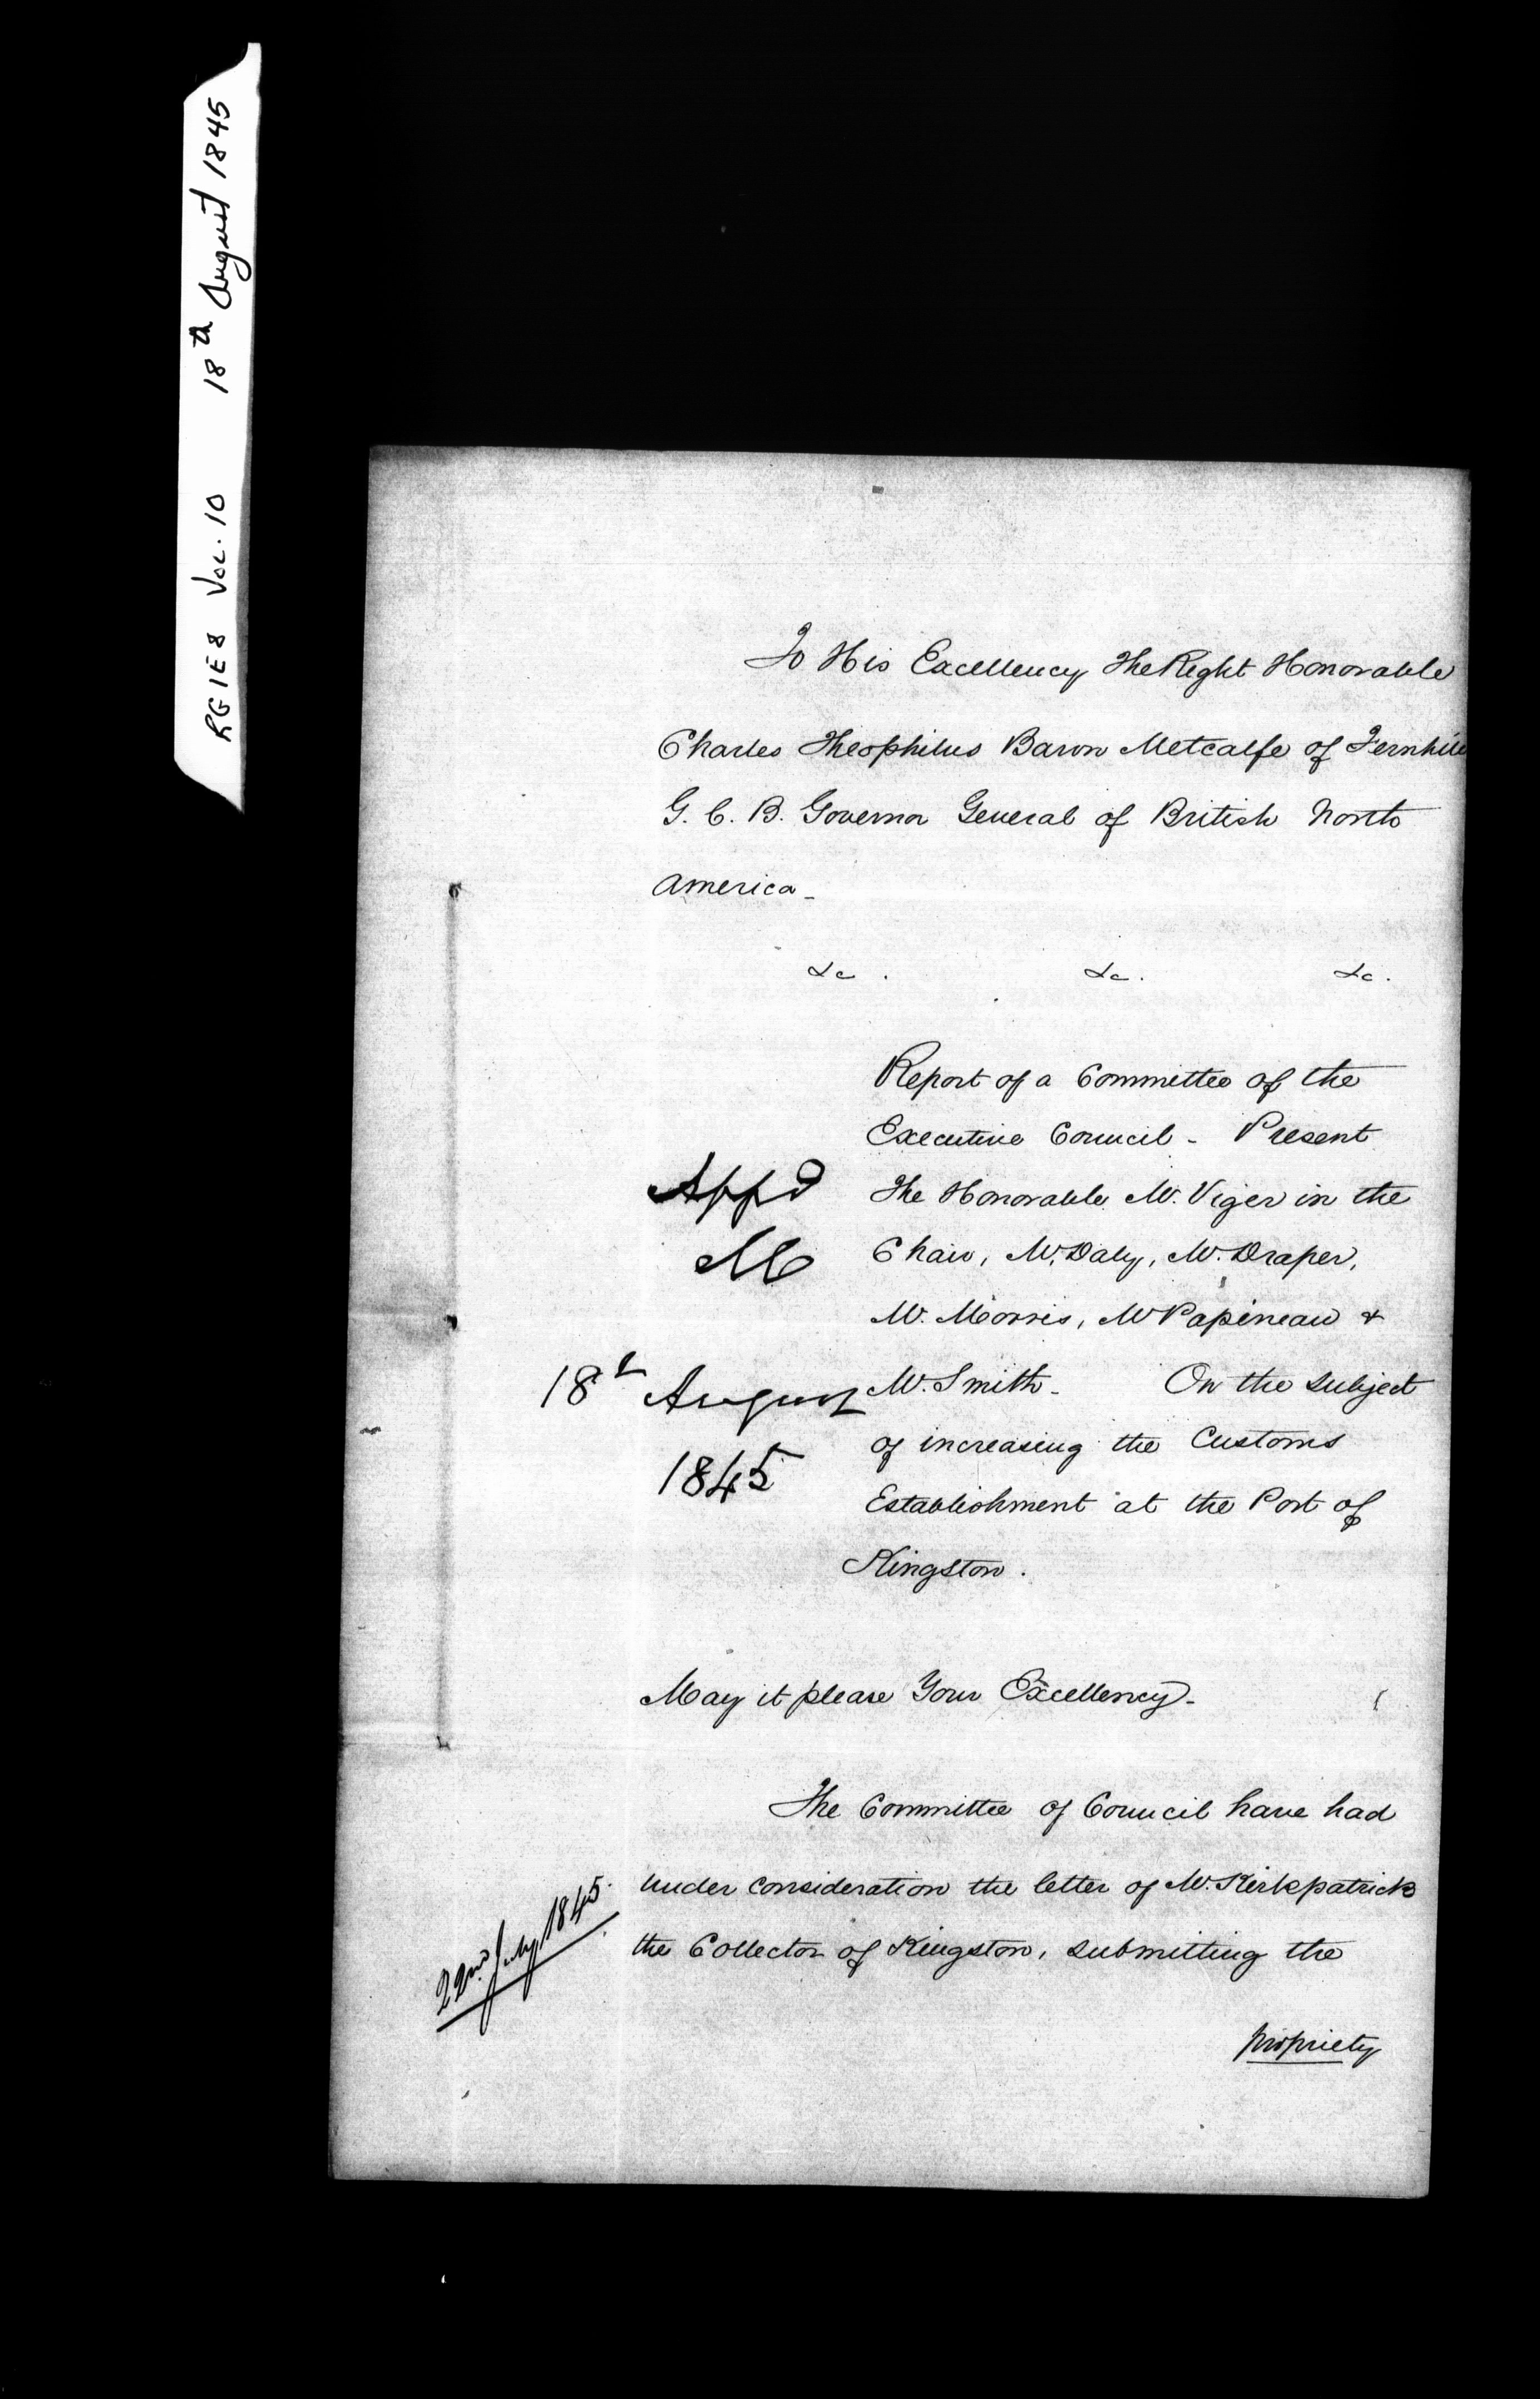 RG1E8 Vol. 10 18th August 1845
To His Excellency The Right Honorable
Charles Theophilus Baron Metcalfe of Fernhill
G. C. B. Governor General of British North
America_
&c. &c. &c.
Report of a Committee of the
Executive Council - Present
The Honorable Mr. Viger in the
Chair, Mr. Daly, Mr. Draper,
Mr. Morris, Mr Papineau &
Mr. Smith - On the subject
of increasing the Customs
Establishment at the Port of
Kingston.
Appd
M
18th August
1845
May it please Your Excellency -
The Committee of Council have had
under consideration the letter of Mr. Kirkpatrick
the Collector of Kingston, submitting the
22nd July 1845.
propriety